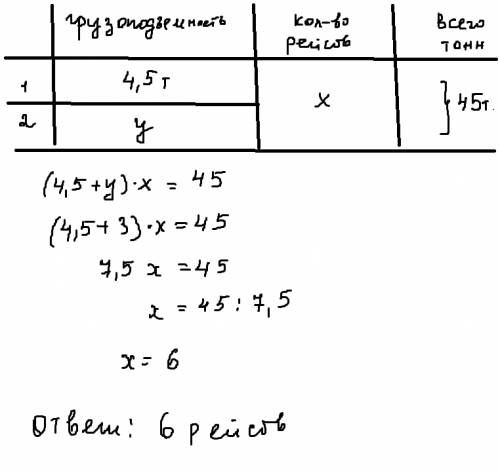 грузоподъемность кол-во рейсов всего тонн
1 4,5 т x 45т.
2 y
(4,5+y)·x = 45
(4,5+3)·x=45
7,5 x =45
x = 45:7,5
x= 6
Ответ: 6 рейсов